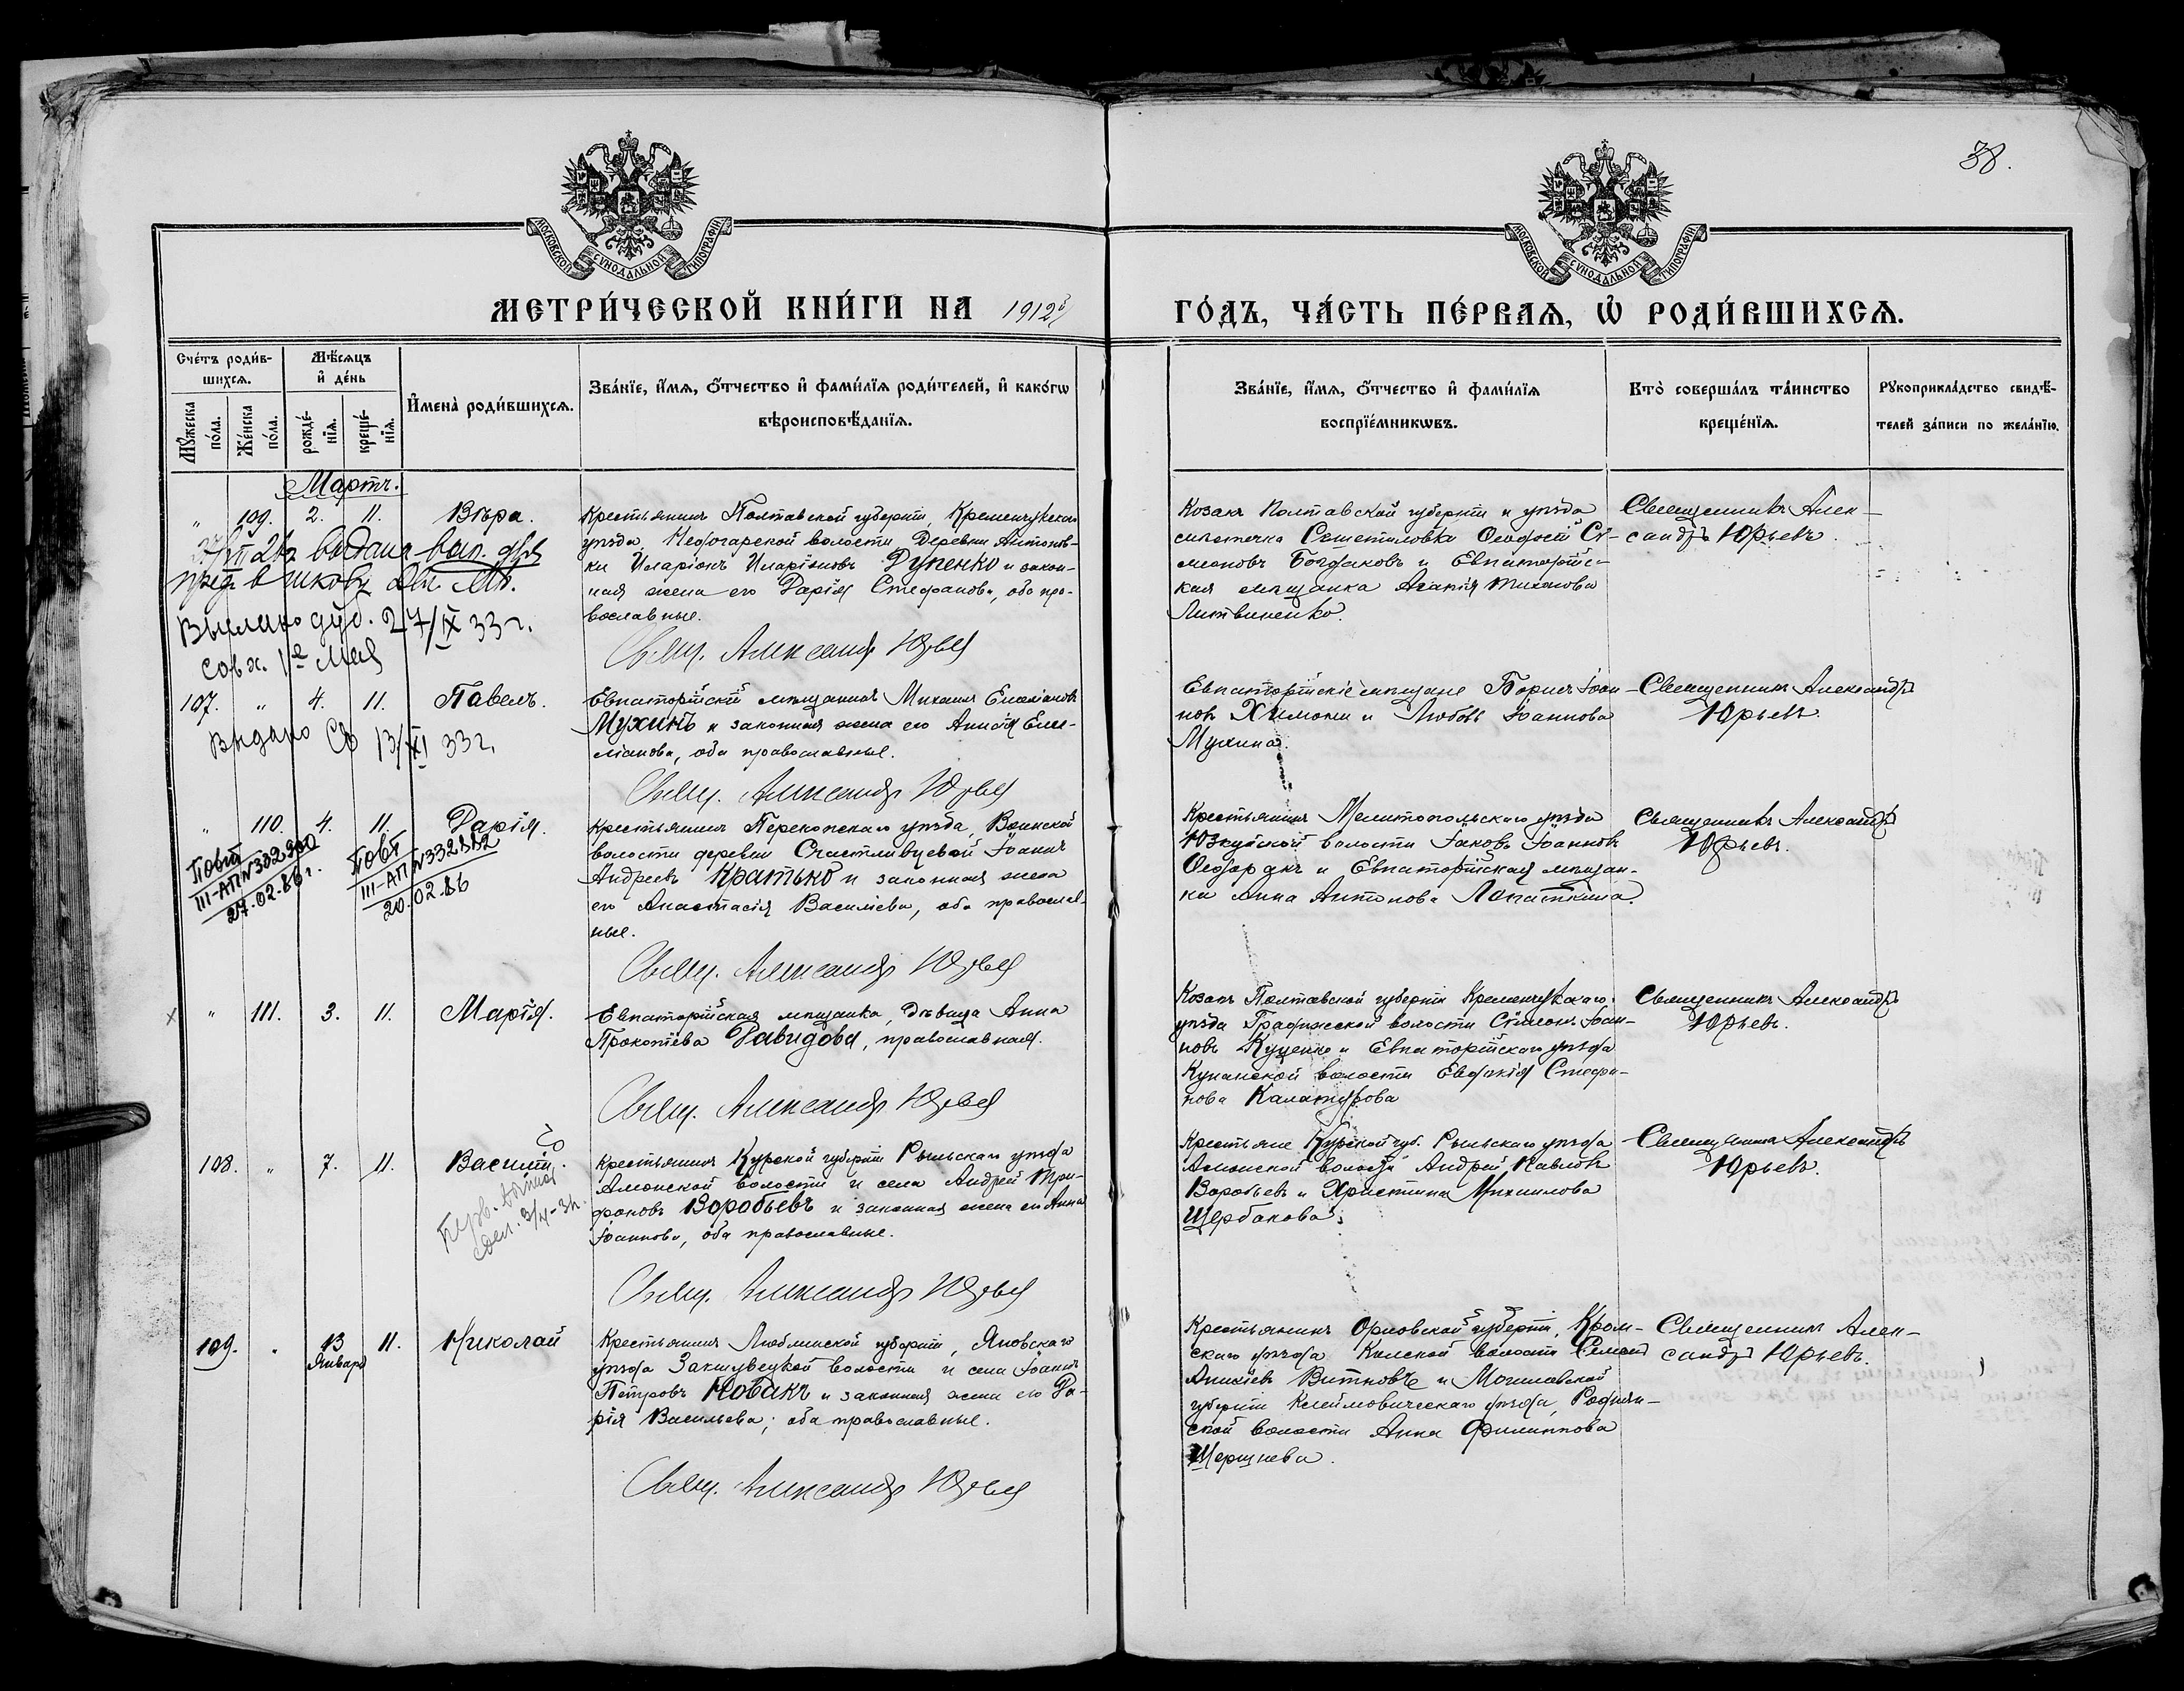 38.
МОСКОВСКОЙ СѴНОДАЛЬНОЙ ТИПОГРАФІИ
МОСКОВСКОЙ СѴНОДАЛЬНОЙ ТИПОГРАФІИ
МЕТРИ́ЧЕСКОЙ КНИ́ГИ НА 1912й
ГО́ДЪ, ЧА́СТЬ ПЕ́РВАѦ, Ѡ҆ РОДИ́ВШИХСѦ.
Сче́тъ роди́в-
шихсѧ.
Мꙋ́жеска по́ла.
Же́нска по́ла.
Мѣ́сѧцъ
и҆ де́нь
рожде́-
нїѧ.
креще́-
нїѧ.
И҆мена̀ роди́вшихсѧ.
Зва́нїе, и҆́мѧ, ѻ҆́тчество и҆ фами́лїѧ роди́телей, и҆ како́гѡ
вѣроисповѣ́данїѧ.
Зва́нїе, и҆́мѧ, ѻ҆́тчество и҆ фами́лїѧ
воспрїе́мникѡвъ.
Кто̀ соверша́лъ та́инство
креще́нїѧ.
Рꙋкоприкла́дство свидѣ́-
телей за́писи по жела́нїю.
Мартъ.
„ 109. 2. 11. Вѣра.
Крестьянинъ Полтавской губерніи, Кременчугскаго
уѣзда, волости, Деревни Антонов-
ки Иларіонъ Иларіоновъ Дупенко и закон-
ная жена его Дарія Стефанова, оба пра-
вославные.
Свящ. Александр Юрьев
Козакъ Полтавской губерніи и уѣзда
мѣстечка Решетиловка Ѳеодосій Си-
меоновъ Богдановъ и Евпаторійс-
кая мѣщанка Агапія Тихонова
Литвиненко.
Священникъ Алек-
сандръ Юрьевъ.
выдана
Выслано дуб. 27/IX 33 г.
сов х. 1е Мая
107. „ 4. 11. Павелъ.
Евпаторійскій мѣщанинъ Михаилъ Емеліановъ
Мухинъ и законная жена его Анисія Еме-
ліанова, оба православные.
Свящ. Александр Юрьев
Евпаторійскіе мѣщане Борисъ Іоан-
новъ Химони и Любовь Іоаннова
Мухина.
Священникъ Александръ
Юрьевъ.
Выдано Св 13/XI 33 г.
„ 110. 4. 11. Дарія.
Крестьянинъ Перекопскаго уѣзда, Воинской
волости деревни Счастливцевой Іоаннъ
Андреевъ Кратько и законная жена
его Анастасія Василіева, оба православ-
ные.
Свящ. Александр Юрьев
Крестьянинъ Мелитопольскаго уѣзда
Юзкуйской волости Іаковъ Іоанновъ
и Евпаторійская мѣщан-
ка Анна Антонова Лопаткина.
Священникъ Александръ
Юрьевъ.
Повт
III-АП №332900
27.02.86 г.
Повт
III-АП №332882
20.02.86
х „ 111. 3. 11. Марія.
Евпаторійская мѣщанка, дѣвица Анна
Прокопіева Давидова, православная.
Свящ. Александр Юрьев
Козакъ Полтавской губерніи Кременчугскаго
уѣзда Градижской волости Сѵмеонъ Іоан-
новъ Куценко и Евпаторійскаго уѣзда
Кунанской волости Евдокія Стефа-
нова Калатурова
Священникъ Александръ
Юрьевъ.
108. „ 7. 11. Василій.
Крестьянинъ Курской губерніи Рыльскаго уѣзда
Амонской волости и села Андрей Три-
фоновъ Воробьевъ и законная жена его Анна
Іоаннова, оба православные.
Свящ. Александр Юрьев
Крестьяне Курской губ. Рыльскаго уѣзда
Амонской волости Андрей Павловъ
Воробьевъ и Христина Михаилова
Щербакова.
Священникъ Александръ
Юрьевъ.
109. „ 13 Января 11. Николай
Крестьянинъ Люблинской губерніи, Яновскаго
уѣзда Закшувецкой волости и села Іоаннъ
Петровъ Новакъ и законная жена его Да-
рія Васильева; оба православные.
Свящ. Александр Юрьев
Крестьянинъ Орловской губерніи, Кром-
скаго уѣзда волости Семенъ
Витковъ и Могилевской
губерніи Климовическаго уѣзда, Родня-
ской волости Анна Филиппова
Шершнева.
Священникъ Алек-
сандръ Юрьевъ.